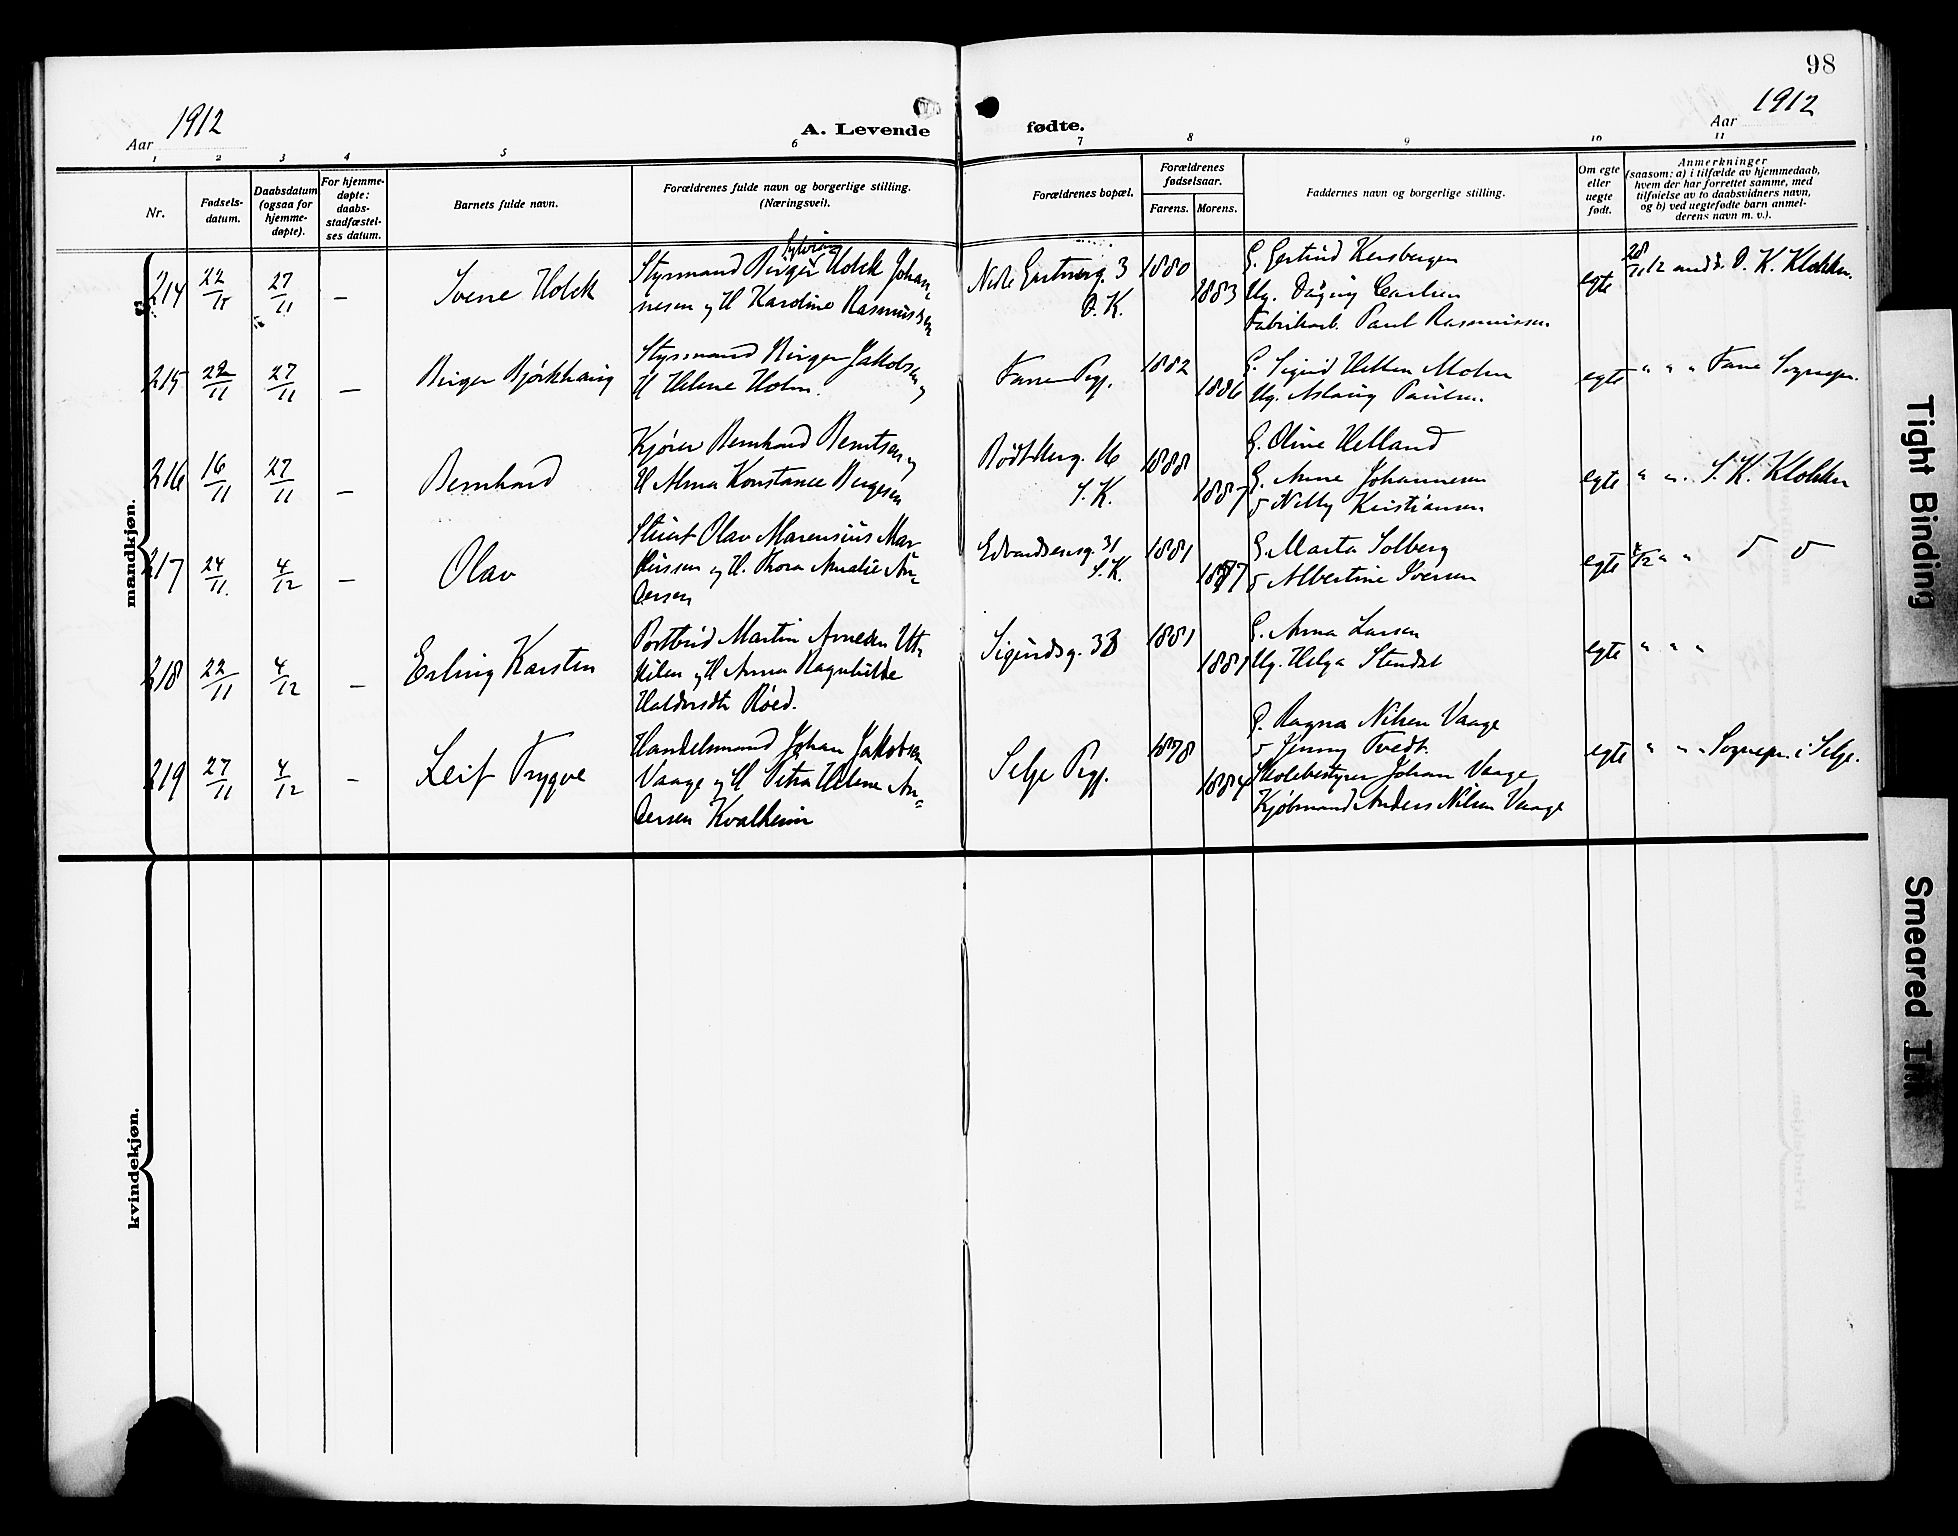 98
Aar 1912
A. Levende fødte.
Aar 1912
1 2 3 4 5 6 7 8 9 10 11
Nr.
Fødsels-
datum.
Daabsdatum
(ogsaa for
hjemme-
døpte).
For hjemme-
døpte:
daabs-
stadfæstel-
ses datum.
Barnets fulde navn.
Forældrenes fulde navn og borgerlige stilling.
(Næringsvei).
Forældrenes bopæl.
Forældrenes
fødselsaar.
Farens. Morens.
Faddernes navn og borgerlige stilling.
Om egte
eller
uegte
født.
Anmerkninger
(saasom: a) i tilfælde av hjemmedaab,
hvem der har forrettet samme, med
tilføielse av to daabsvidners navn,
og b) ved uegtefødte barn anmel-
derens navn m. v.).
mandkjøn.
214 22/11 27/11 — Sverre Holck
Styrmand Birger Holck Johan-
nesen og H Karoline Rasmussen
3
O. K.
1880 1883
G. Gertrud
Ug. Dagny Carlsen
Fabrikarb. Paul Rasmussen
egte
28/11 12 O. K. Klokker.
215 22/11 27/11 — Birger Bjørkhaug
Styrmand Birger Jakobsen og
H Helene Holm.
Fane Pgj.
1882 1886
G. Sigrid Holm
Ug. Aslaug Paulsen
egte
" " " Fane Sognepr.
216 16/11 27/11 — Bernhard
Kjører Bernhard Berntsen og
H Alma Konstance Bergesen
16
S. K.
1888 1887
G. Oline Helland
G. Anne Johannesen
σ Nelly Kristiansen
egte
" ". S. K. Klokker
217 24/11. 4/12 — Olav
Olav Marensius Mar-
tinssen og H. Thora Amalie An-
dersen
Edvardsensg. 31
S. K.
1881 1877
G. Marta Solberg
σ Albertine Iversen
egte
4/12 " " σ σ
218 22/11 4/12 — Erling Karsten
Postbud Martin Arnesen Ut-
kilen og H Anna Ragnhilde
Haldorsdtr Røed.
Sigurdsg. 3B
1881 1881
G. Anna Larsen
Ug. Helga Stendal
egte
" " "
219 27/11 4/12 — Leif Trygve
Handelsmand Johan Jakobsen
Vaage og H Petra Helene An-
dersen Kvalheim
Selje Pgj.
1878 1884
G. Ragna Nilsen Vaage
σ Jenny Tvedt.
Skolebestyrer Johan Vaage
Kjøbmand Anders Nilsen Vaage
egte
" " " Sognepr. i Selje.
kvindekjøn.
Tight Binding
Smeared Ink